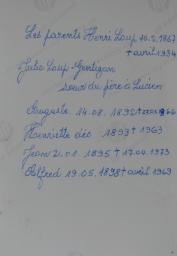 Les parents Henri Loup 16.2.1867
† avril 1934
Julie Loup-Grutigan
sœur du père à Lucien
Auguste 14.08.1892 † 1966
Henriette déc 1893 † 1963
Jean 2.01.1895 † 17.04.1973
Alfred 19.05.1898 † avril 1969